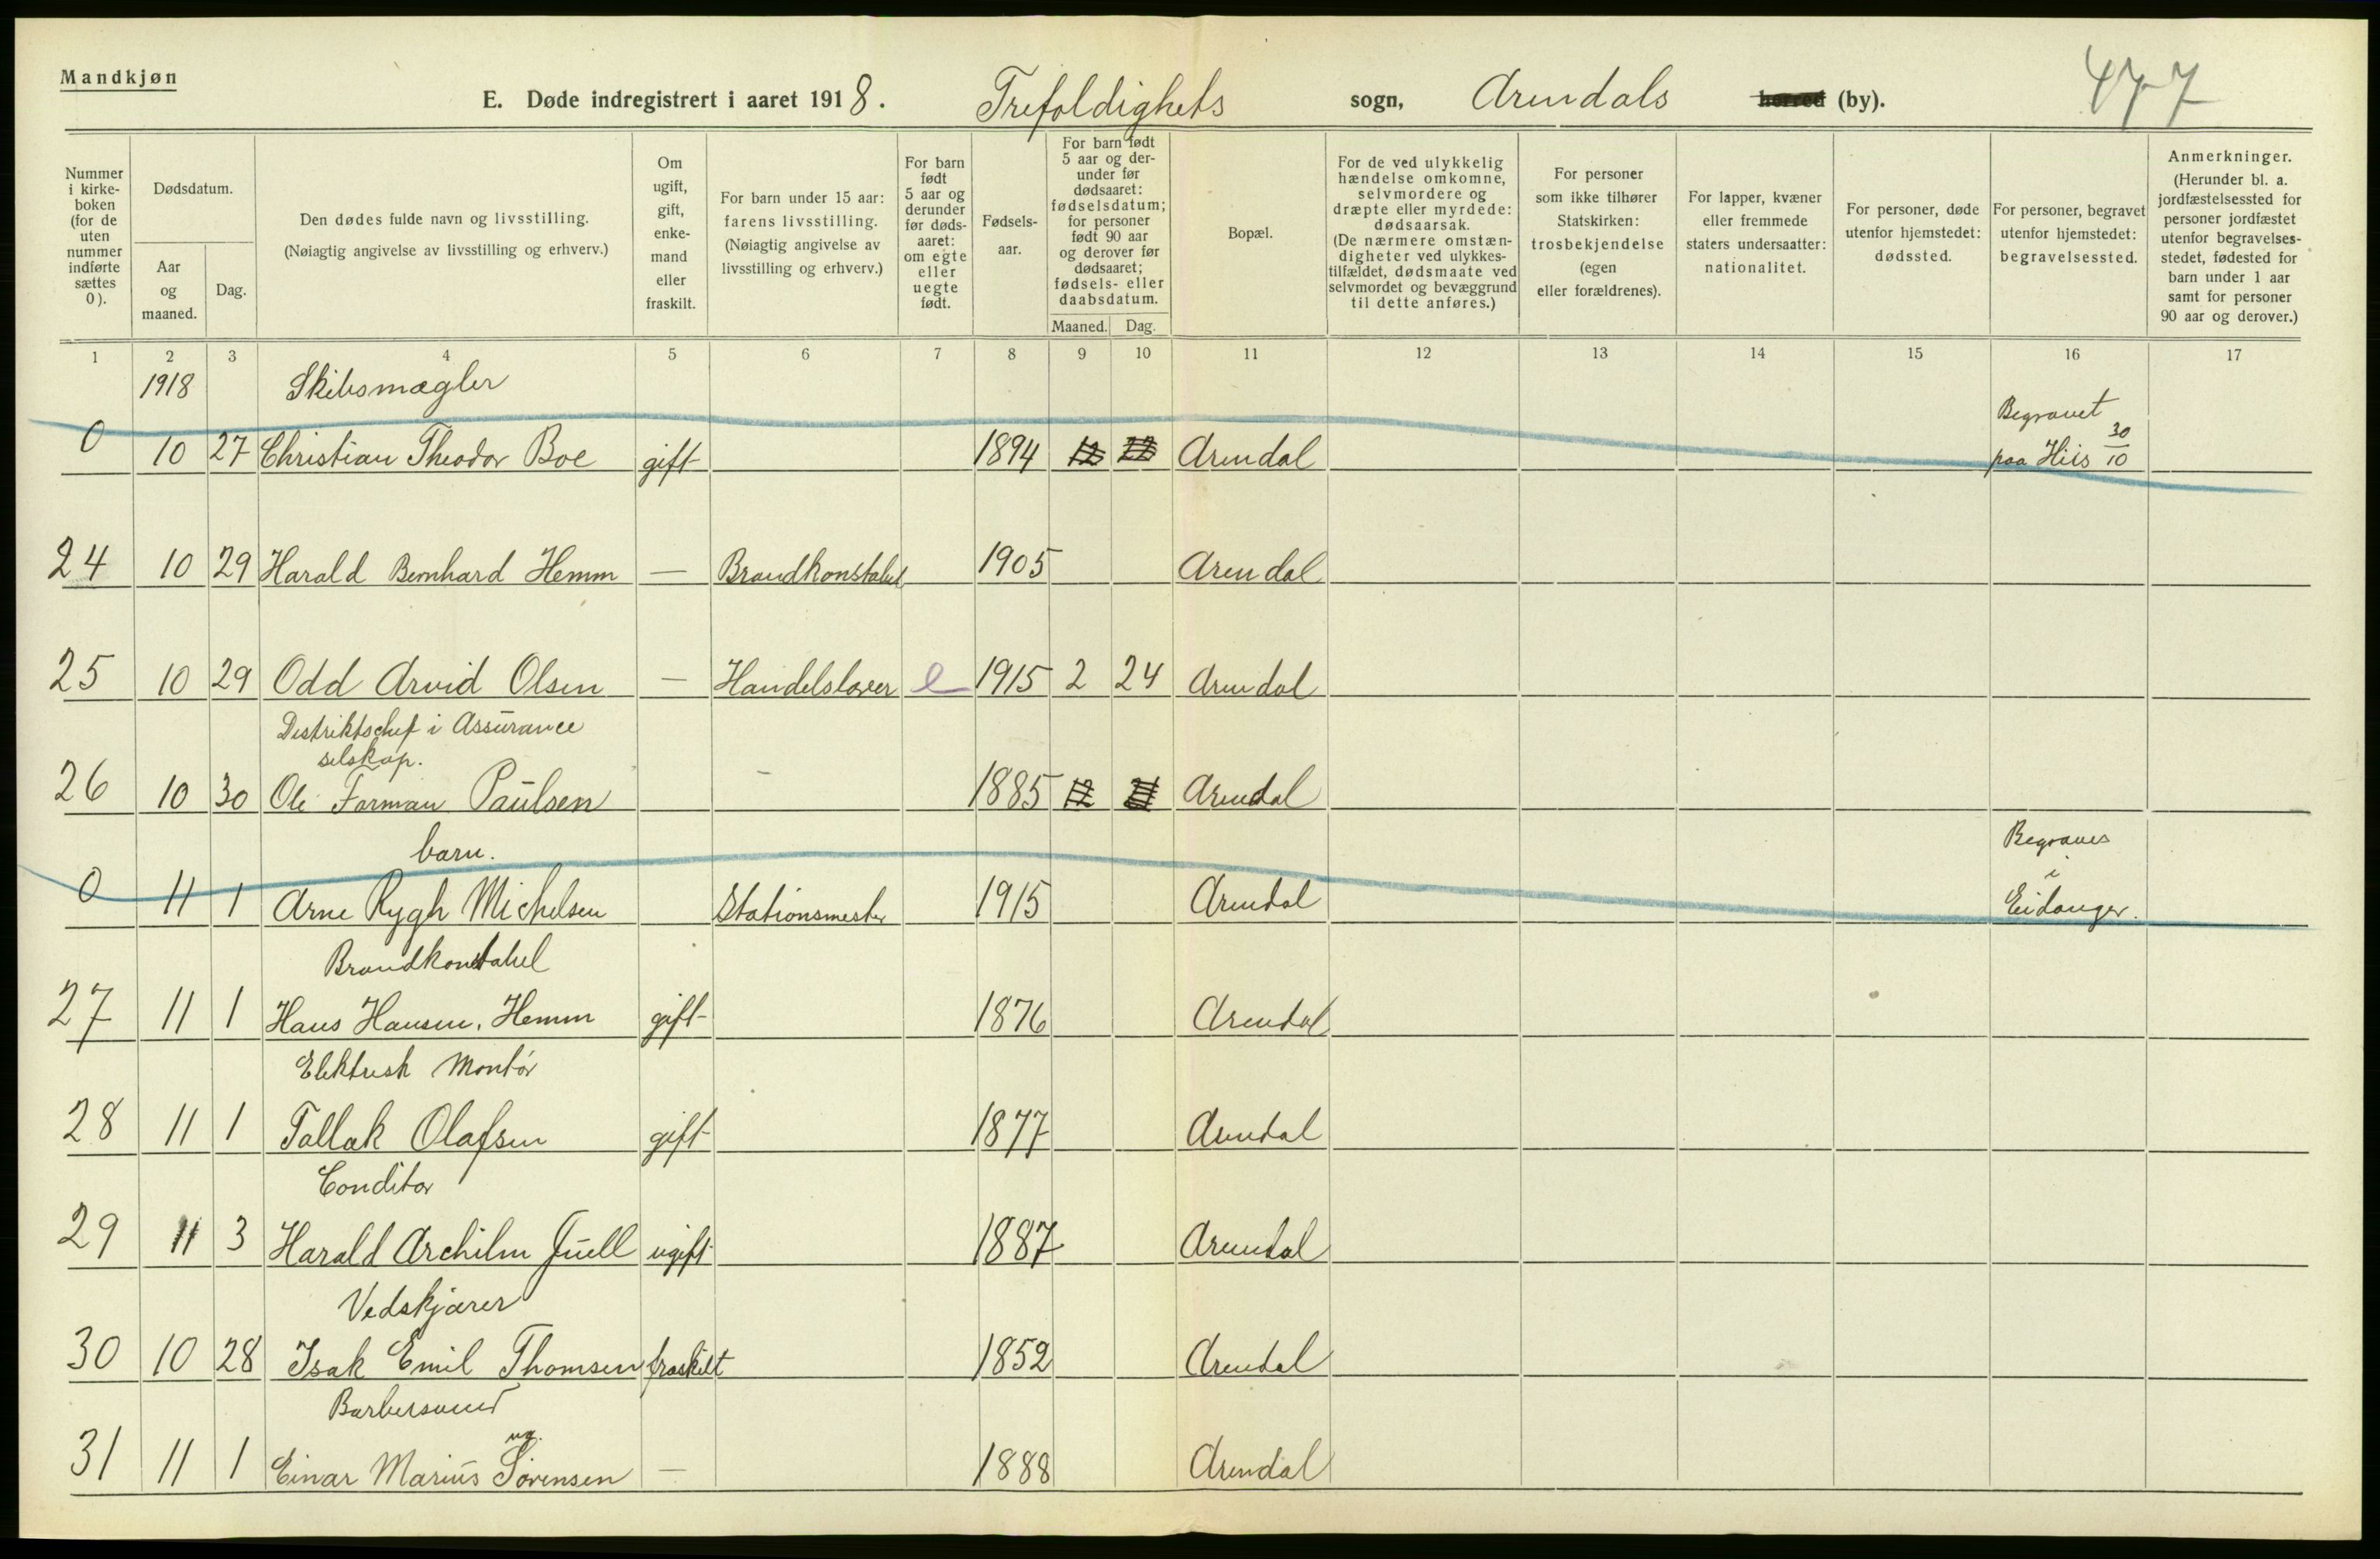 Mandkjøn
E. Døde indregistrert i aaret 1918. Trefoldighets sogn, Arendals herred (by). 477
Nummer i kirkeboken (for de uten nummer indførte sættes 0).
Dødsdatum.
Aar og maaned.
Dag.
Den dødes fulde navn og livsstilling.
(Nøiagtig angivelse av livsstilling og erhverv.)
Om ugift, gift, enkemand eller fraskilt.
For barn under 15 aar: farens livsstilling. (Nøiagtig angivelse av livsstilling og erhverv.)
For barn født 5 aar og derunder før dødsaaret: om egte eller uegte født.
Fødselsaar.
For barn født 5 aar og derunder før dødsaaret: fødselsdatum; for personer født 90 aar og derover før dødsaaret; fødsels- eller daabsdatum.
Maaned. Dag.
Bopæl.
For de ved ulykkelig hændelse omkomne, selvmordere og dræpte eller myrdede: dødsaarsak. (De nærmere omstændigheter ved ulykkestilfældet, dødsmaate ved selvmordet og bevæggrund til dette anføres.)
For personer som ikke tilhører Statskirken: trosbekjendelse (egen eller forældrenes).
For lapper, kvæner eller fremmede staters undersaatter: nationalitet.
For personer, døde utenfor hjemstedet: dødssted.
For personer, begravet utenfor hjemstedet: begravelsessted.
Anmerkninger. (Herunder bl. a. jordfæstelsessted for personer jordfæstet utenfor begravelsesstedet, fødested for barn under 1 aar samt for personer 90 aar og derover.)
1 2 3 4 5 6 7 8 9 10 11 12 13 14 15 16 17
1918 Skibsmægler
Begravet
0 10 27 Christian Theodor Boe gift 1894 12 22 Arendal paa Hiis 30/10
24 10 29 Harald Bernhard Hemm — Brandkonstabel 1905 Arendal
25 10 29 Odd Arvid Olsen — Handelslærer e 1915 2 24 Arendal
Distriktschef i Assurance
selskap.
26 10 30 Ole Forman Paulsen - 1885 12 Arendal
barn. Begraves
0 11 1 Arne Rygh Michelsen Stationsmester 1915 Arendal i Eidanger.
Brandkonstabel
27 11 1 Hans Hansen, Hemm gift 1876 Arendal
Elektrisk Montør
28 11 1 Tallak Olafsen gift 1877 Arendal
Conditor
29 11 3 Harald Archilm Juell ugift 1887 Arendal
Vedskjærer
30 10 28 Isak Emil Thomsen fraskilt 1852 Arendal
Barbersvend
ug.
31 11 1 Einar Marius Sørensen — 1888 Arendal